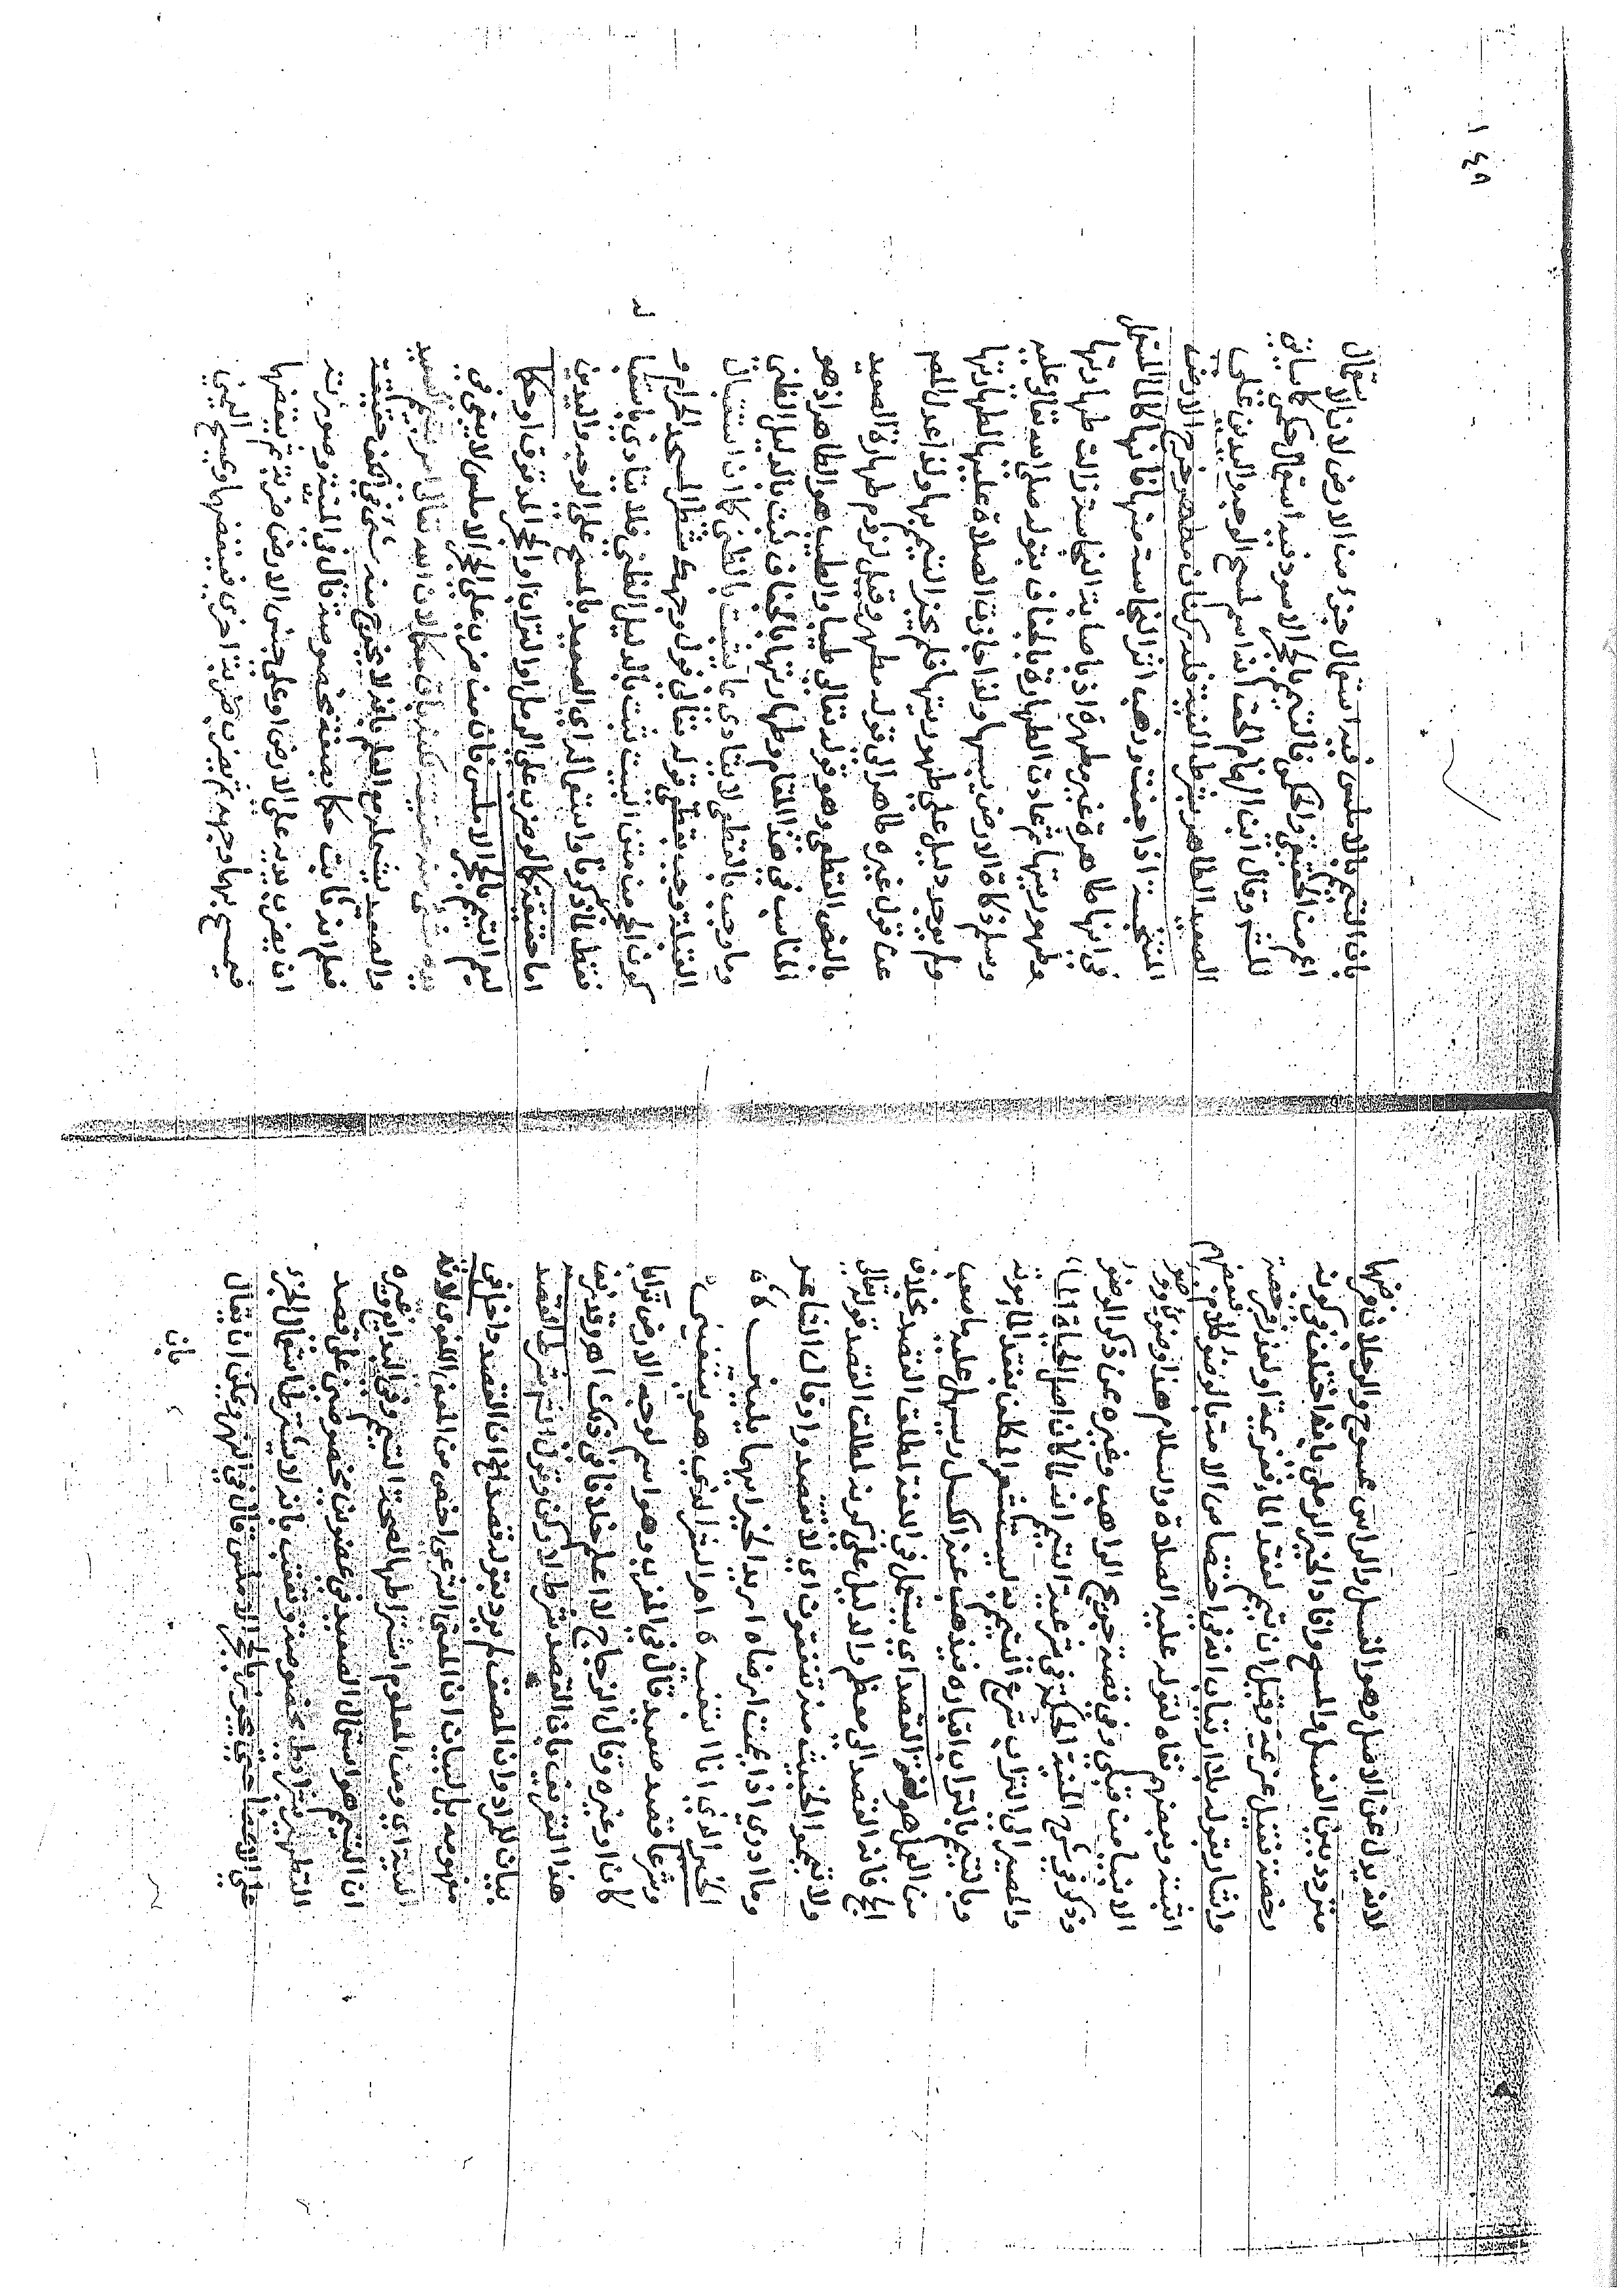 لانه بدل عن الاصل وهو الغسل والراس ممسوح والرجلان فرضها
متردد بين الغسل والمسح وافاد الخير الرملي بانه اختلف في كونه
رخصة فقيل عزيمة وقيل ان تيمم لفقد الماء فعزيمة او لعذر فرخصة
واشار بقوله بلا ارتياب انه في اختصاص الامة بالوضوء كلام فبعضهم
اثبته وبعضهم نفاه لقوله عليه الصلاة والسلام هذا وضوئي ووضوء
الانبيا من قبلي وفي قصة جريج الراهب وغيره عن ذكر الوضوء
وذكر في كرخ المنية الحكمة في شرعية التيمم انه لما كان اصل الحياة الماء
والمصير الى التراب شرع التيمم به ليستشعر المكلف بفقد الماء موته
وبالتيمم بالتراب اقباره فيذهب عنه الكسل ويسهل عليه ما صعب
من العمل هو لغة القصد اي يستعمل في اللغة لمطلق القصد بخلاف
الحج فانه القصد الى معظم والدليل على كونه لمطلق القصد قوله تعالى
ولا تيمموا الخبيث منه تنفقون اي لا تقصدوا وقال الشاعر
وما ادري اذا يممت ارضا ه اريد الخير ايهما يليني ه
الخير الذي انا ابتغيه ه ام الشر الذي هو يبتغيني ه
وشرعا قصد صعيد قال في المغرب وهو اسم لوجه الارض ترابا
كان او غيره وقال الزجاج لا اعلم خلافا في ذلك اهـ وقد زيف
هذا التعريف بان القصد شرط لا ركن وفي ان التيمم شرط القصد
بيان للمراد وان المصنف لم يرد بقوله قصد الخ ان القصد داخل في
مفهومه بل لبيان ان المعنى الشرعي اخص من المعنى اللغوي لانه
النية اي ومن المعلوم اشتراطها لصحة التيمم وفي البدايع وغيره
ان التيمم هو استعمال الصعيد في عضوين مخصوصين على قصد
التطهير بشرائط مخصوصة وتعقب بانه لا يشترط استعمال الجزء
على الاعضا حتى يجوز بالحجر الاملس قال في النهر ويمكن ان يقال
بان
١٤٩
بان التيمم بالاملس فيه استعمال جزء من الارض لان الاستعمال
اعم من الحقيقي والحكمي فالتيمم بالحجر الاسود فيه استعمال حكمي كما سياتي
للمتن وقال ابن الهمام الحق انه اسم لمسح الوجه واليدين على
الصعيد الطاهر بشرط النية فله ركنان مطهر خرج الارض
المتنجسة اذا جفت وذهب اثر النجاسة منها فانها كالماء المستعمل
في انها طاهرة غير مطهرة اذ باصابة النجاسة زالت طهارتها
وطهوريتها ثم عادت الطهارة بالجفاف بقوله صلى الله تعالى عليه
وسلم ذكاة الارض يبسها ولذا جازت الصلاة عليها لطهارتها
ولم يوجد دليل على طهوريتها فلم يجز التيمم بها ولذا عدل المص
عن قول غيره طاهر الى قوله مطهر وقيل لزوم طهارة الصعيد
بالنص القطعي وهو قوله تعالى طيبا والطيب هو الطاهر اذ هو
المناسب في هذا المقام وطهارتها بالجفاف ثبت بالدليل الظني
وما وجب بالقطعي لا يتادى بما يثبت بالظني كما ان استقبال
القبلة وجب بقطعي قوله تعالى فول وجهك شطر المسجد الحرام و
كون الحجر من البيت ثبت بالدليل الظني فلا يتادى باستقباله
فقط لما ذكرنا واستعماله اي الصعيد بالمسح على الوجه واليدين
اما حقيقة كالضرب على الرمل او التراب او الحجر المدقوق او حكما
ليعم التيمم بالحجر الاملس فان من ضرب على الحجر الاملس لا يبقى في
يده شيء منه حقيقة لكنه باق حكما لان الله تعالى امر بتيمم الصعيد
والصعيد يشمله مع العلم بانه لا يخرج منه شيء في الكف حقيقة
فعلم انه ثابت حكما بصفة مخصوصة قال في المنية وصورته
ان يضرب يديه على الارض او على جنس الارض ضربة ثم ينفضها
فيمسح بها وجهه ثم يضرب ضربة اخرى فينفضها ويمسح اليمنى